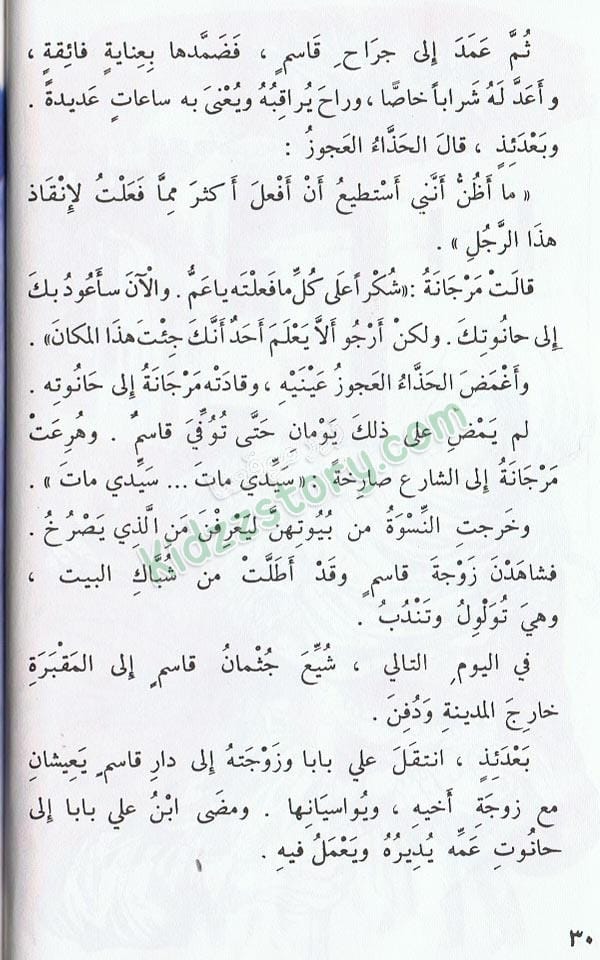 ثُمَّ عَمَدَ إلى جراحِ قَاسمٍ ، فَضَمَّدها بِعِنايةٍ فائِقةٍ ،
وأعَدَّ لَهُ شَراباً خاصًّا ، وراحَ يُراقِبُهُ ويُعْنىَ به ساعاتٍ عَديدةً .
وبَعْدَئِذٍ ، قالَ الحَذَّاءُ العَجوزُ :
« ما أظُنُّ أنَّني أسْتطيعُ أنْ أفْعلَ أكثرَ مِمَّا فَعَلْتُ لإنْقاذ
هذا الرَّجُلِ » .
قالَتْ مَرْجَانَةُ : «شُكْراً على كُلِّ ما فعلْتَه يا عَمُّ . والْآنَ سأعُودُ بكَ
إلى حانُوتِكَ . ولكنْ أرْجُو ألاَّ يَعْلَمَ أحَدٌ أنَّكَ جِئْتَ هذا المكانَ» .
وأغْمَضَ الحَذَّاءُ العَجوزُ عَيْنَيْهِ ، وقادَتْه مَرْجَانَةُ إلى حَانُوتِه .
لم يَمْضِ على ذلكَ يَوْمان حَتَّى تُوُفِّيَ قاسمٌ . وهُرِعَتْ
مَرْجَانَةُ إلى الشارعِ صارِخةً : «سيِّدي ماتَ ... سَيِّدي ماتَ » .
وخَرجتِ النِّسْوَةُ من بُيُوتِهنَّ ليَعْرِفْنَ مَنِ الَّذي يَصْرُخُ .
فشاهَدْنَ زَوْجةَ قاسمٍ وقَدْ أطَلَّتْ من شُبَّاكِ البيت ،
وهيَ تُوَلْوِلُ وتَنْدُبُ .
في اليومِ التالي ، شُيِّعَ جُثْمانُ قاسمٍ إلى المَقْبَرَةِ
خارجَ المدينةِ وَدُفِنَ .
بَعْدَئِذٍ ، انتقَلَ علي بابا وزَوْجَتهُ إلى دارِ قاسمٍ يَعِيشانِ
مع زوجةِ أخيهِ ، ويُواسيَانِها . ومضَى ابْنُ علي بابا إلى
حانُوتِ عَمِّه يُديرُهُ ويَعْمَلُ فيهِ .
٣٠
kidzzstory.com